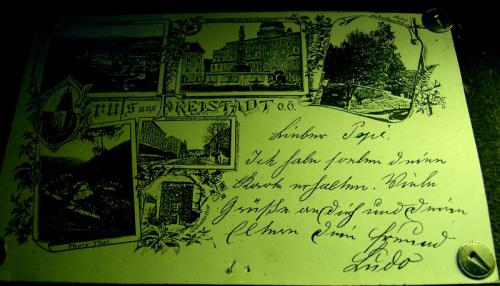 Gruss aus FREISTADT O.Ö.
Thury-Thal
Lieber Pepi.
Ich habe soeben deine
Karte erhalten. Viele
Grüße an dich und deinen
Eltern dein Freund
Ludo